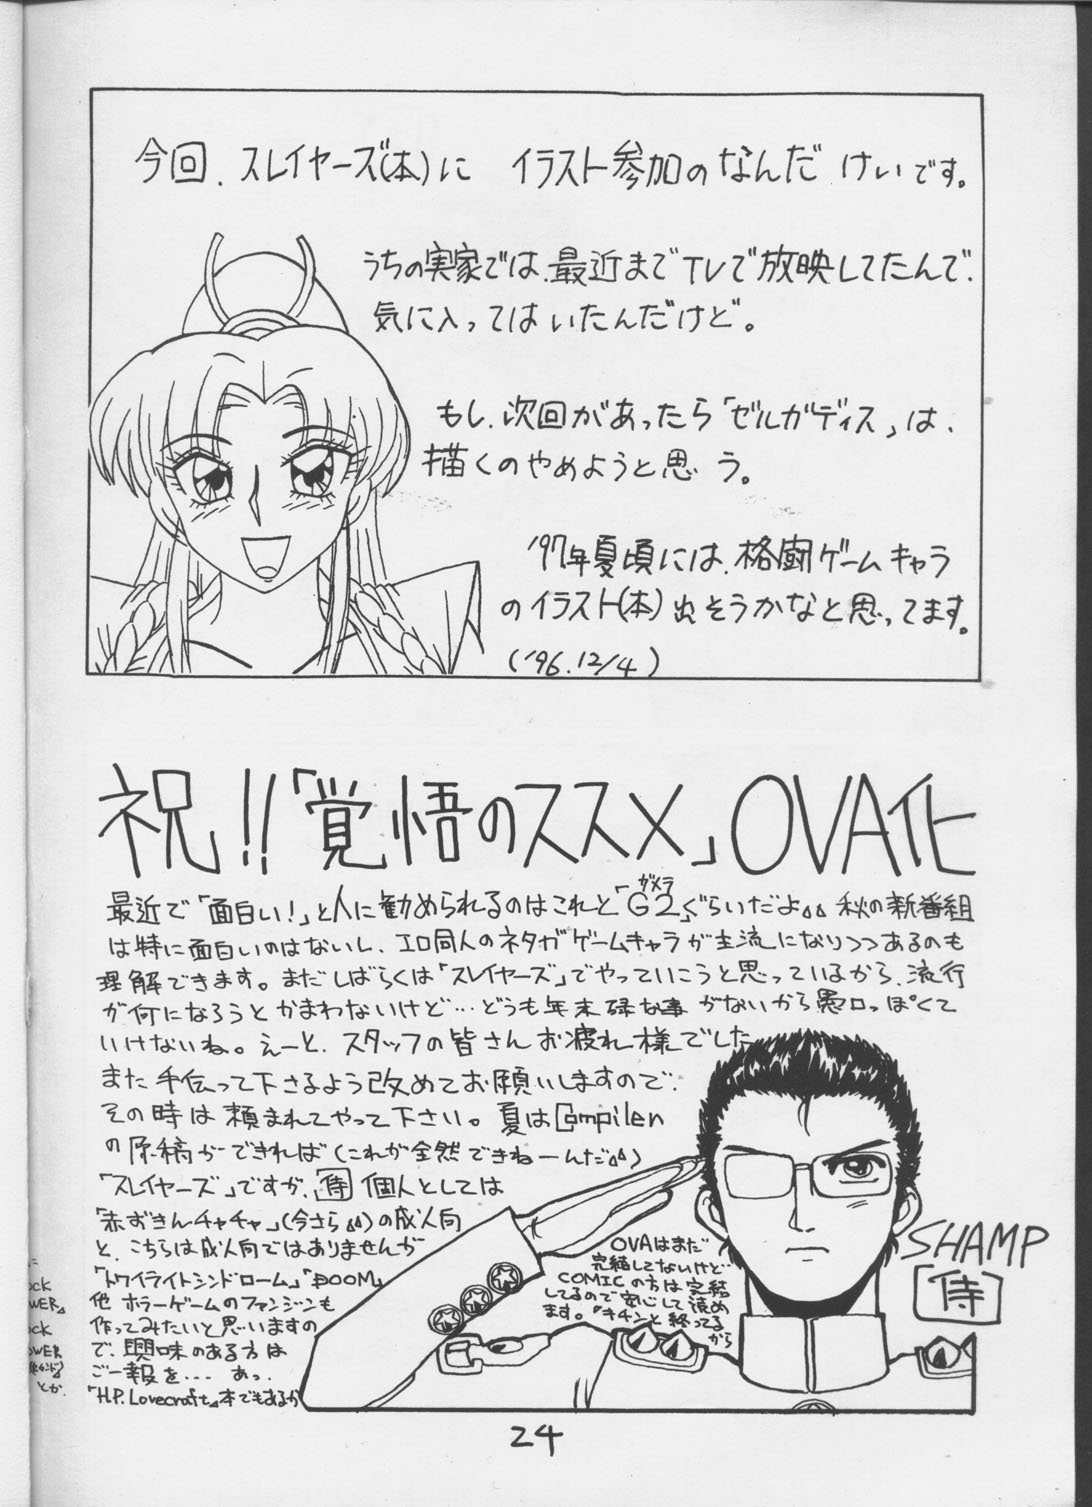 今回、スレイヤーズ(本)に イラスト参加のなんだ けいです。
うちの実家では、最近までTVで放映してたんで、
気に入ってはいたんだけど。
もし、次回があったら「ゼルガディス」は、
描くのやめようと思う。
'97年夏頃には、格闘ゲームキャラ
のイラスト(本)出そうかなと思ってます。
('96.12/4)
祝!!「覚悟のススメ」OVA化
ガメラ
最近で「面白い!」と人に勧められるのはこれと「G2」ぐらいだよ。秋の新番組
は特に面白いのはないし、エロ同人のネタがゲームキャラが主流になりつつあるのも
理解できます。まだしばらくは「スレイヤーズ」でやっていこうと思っているから、流行
が何になろうとかまわないけど…どうも年末碌な事がないから愚口っぽくて
いけないね。えーと、スタッフの皆さんお疲れ様でした
また手伝って下さるよう改めてお願いしますので、
その時は頼まれてやって下さい。夏はCompilen
の原稿ができれば(これが全然できねーんだ)
「スレイヤーズ」ですが、侍個人としては
「赤ずきんチャチャ」(今さら)の成人向
と、こちらは成人向ではありませんが
「トワイライトシンドローム」「DOOM」
他ホラーゲームのファンジンも
作ってみたいと思いますの
で、興味のある方は
ご一報を… あっ、
「H.P. Lovecraft」本でもあるか
OVAはまだ
完結してないけど
COMICの方は完結
してるので安心して読め
ます。キチンと終ってる
から
SHAMP
[侍]
OCK
OWER
とか.
24